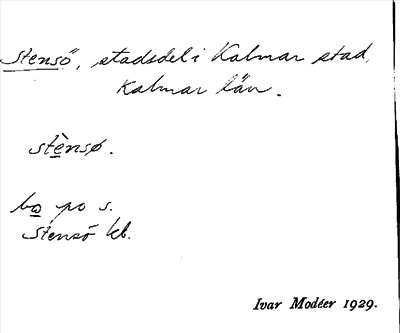 Stensö, stadsdel i Kalmar stad,
Kalmar län.
stènsø.
bo po s.
Stensö kl.
Ivar Modéer 1929.